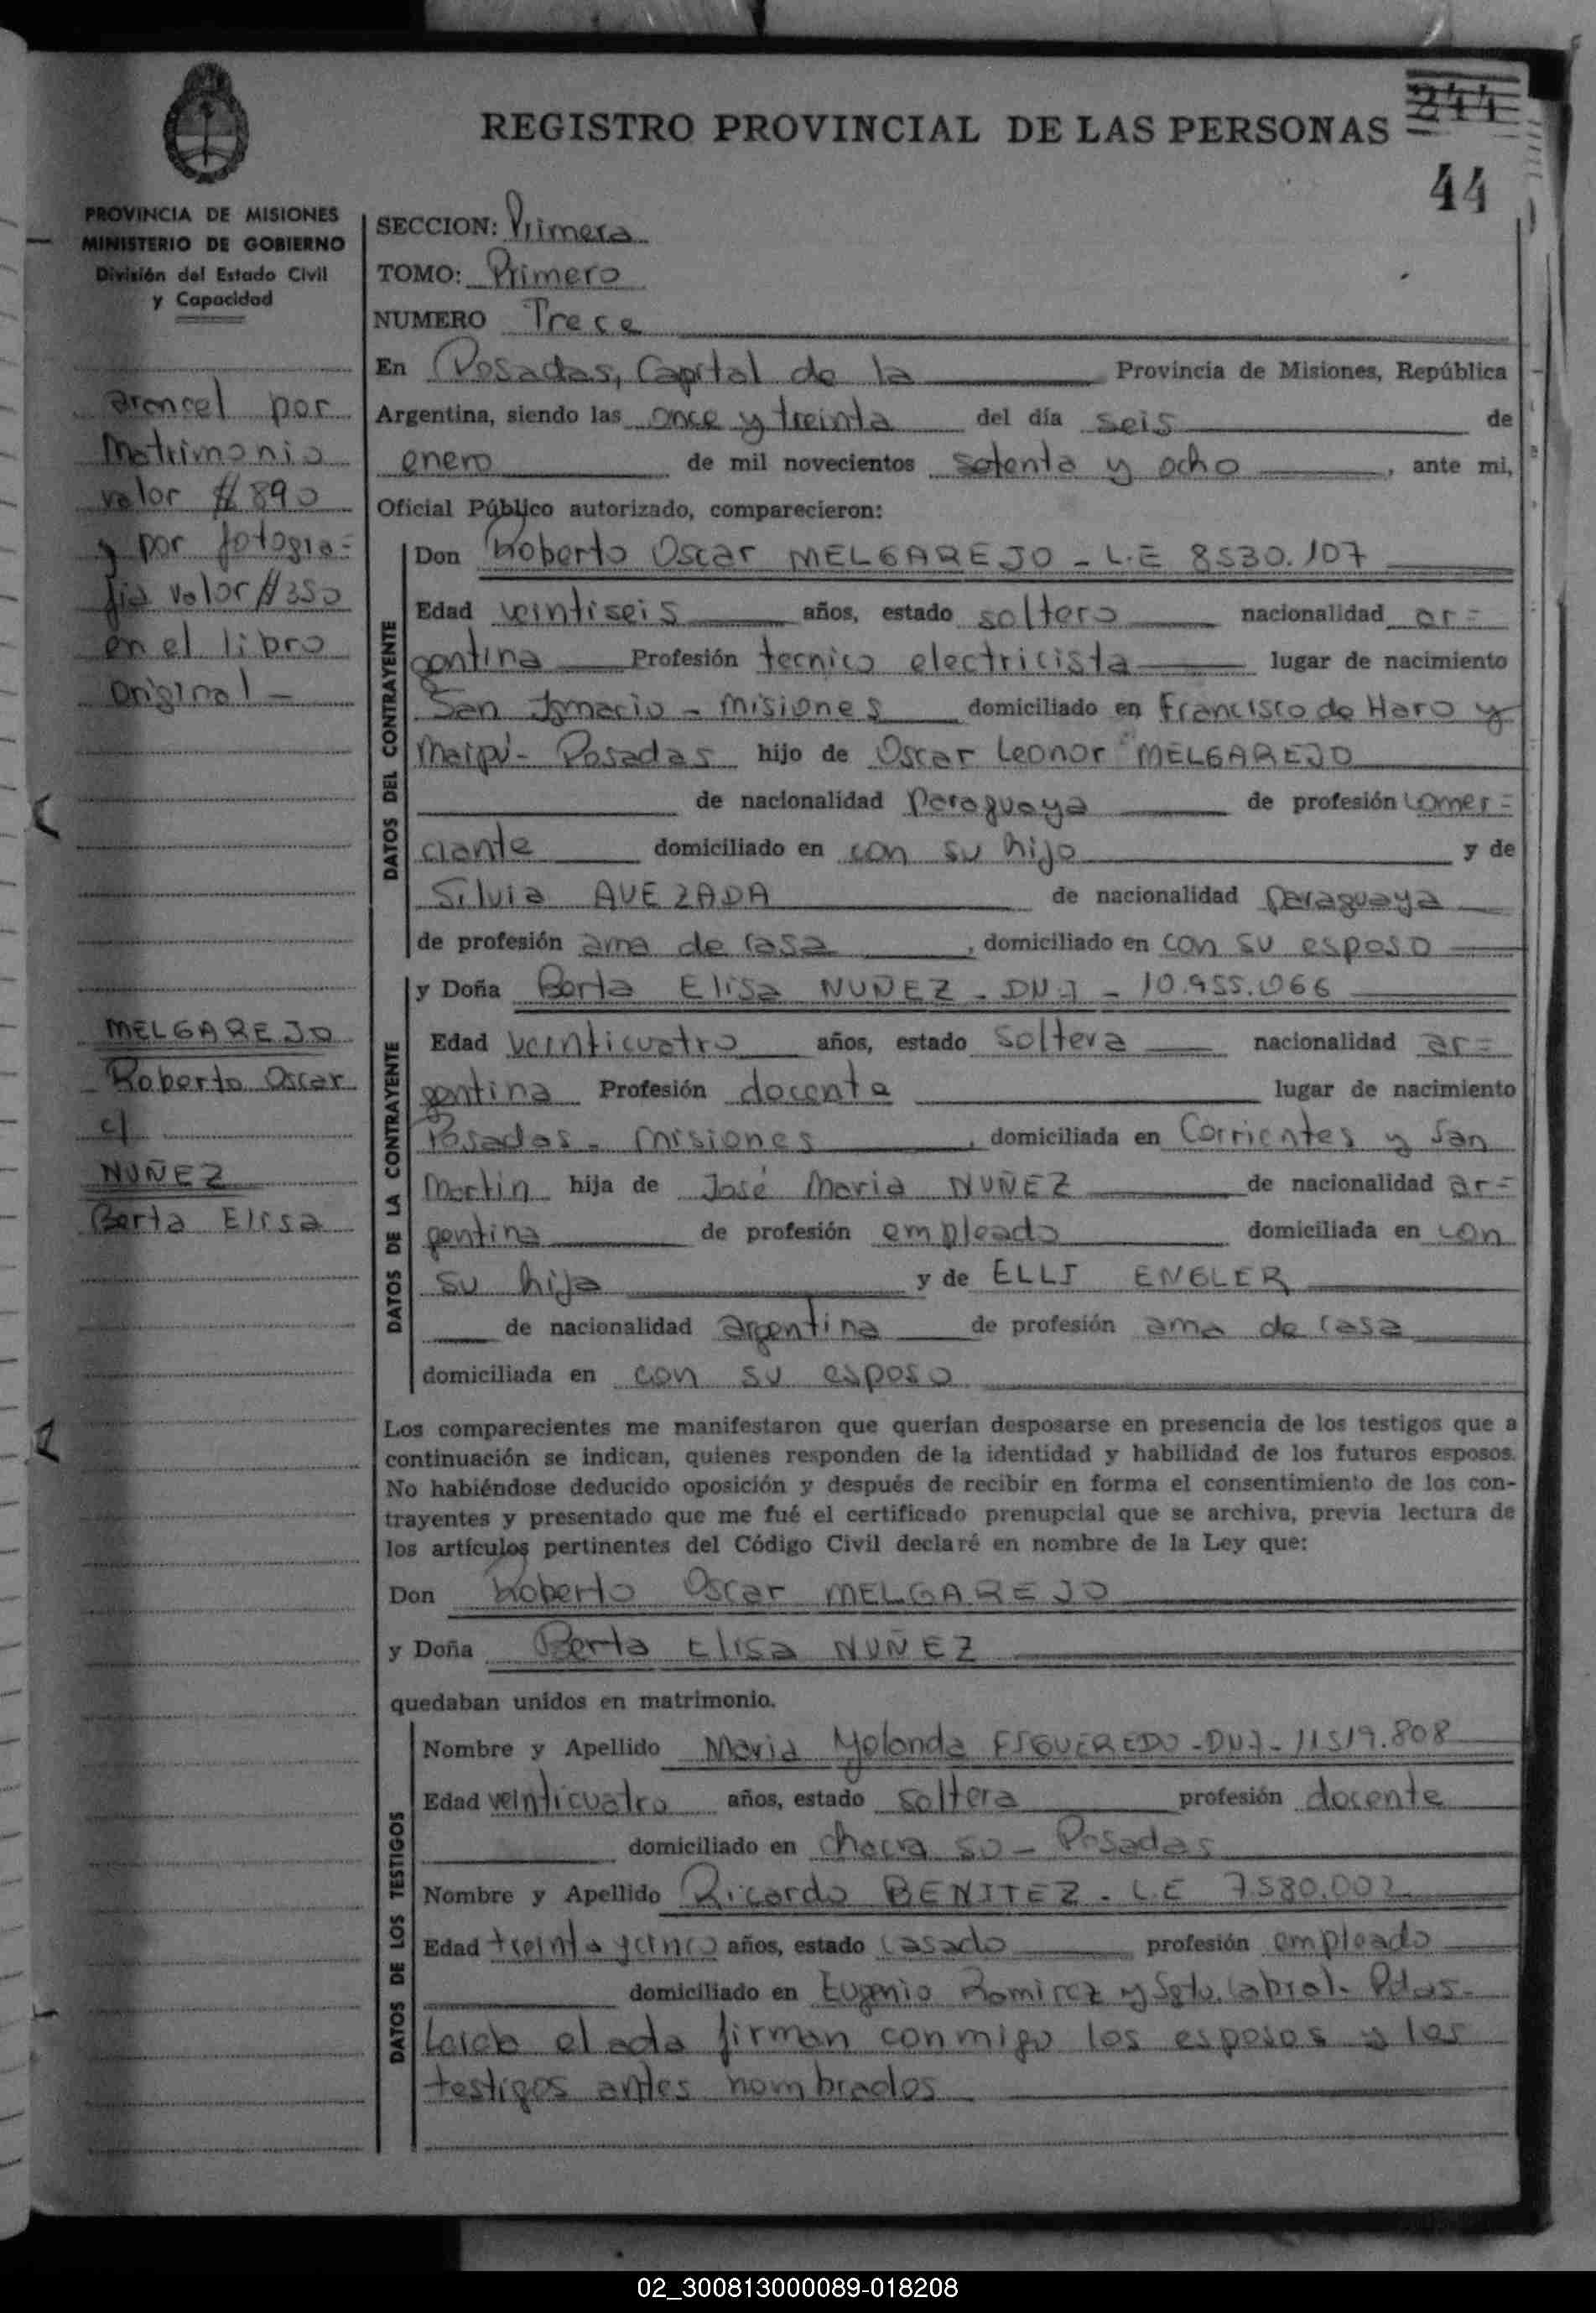 244
REGISTRO PROVINCIAL DE LAS PERSONAS
44
PROVINCIA DE MISIONES
MINISTERIO DE GOBIERNO
División del Estado Civil
y Capacidad
arancel por
Matrimonio
valor $ 890
y por fotogra=
fia valor $ 350
en el libro
original -
MELGAREJO
Roberto Oscar
c/
NUÑEZ
Berta Elisa
SECCION: Primera
TOMO: Primero
NUMERO Trece
En Posadas, Capital de la Provincia de Misiones, República
Argentina, siendo las once y treinta del día seis de
enero de mil novecientos setenta y ocho, ante mi,
Oficial Público autorizado, comparecieron:
DATOS DEL CONTRAYENTE
Don Roberto Oscar MELGAREJO - L.E 8530.107
Edad veintiseis años, estado soltero nacionalidad ar=
gentina Profesión tecnico electricista lugar de nacimiento
San Ignacio - Misiones domiciliado en Francisco de Haro y
Maipú - Posadas hijo de Oscar Leonor MELGAREJO
de nacionalidad Paraguaya de profesión comer=
ciante domiciliado en con su hijo y de
Silvia AVEZADA de nacionalidad paraguaya
de profesión ama de casa, domiciliado en con su esposo
DATOS DE LA CONTRAYENTE
y Doña Berta Elisa NUÑEZ - DNI - 10.955.066
Edad veinticuatro años, estado soltera nacionalidad ar=
gentina Profesión docente lugar de nacimiento
Posadas - Misiones, domiciliada en Corrientes y San
Martin hija de José Maria NUÑEZ de nacionalidad ar=
gentina de profesión empleado domiciliada en con
su hija y de ELLI ENGLER
de nacionalidad argentina de profesión ama de casa
domiciliada en con su esposo
Los comparecientes me manifestaron que querían desposarse en presencia de los testigos que a
continuación se indican, quienes responden de la identidad y habilidad de los futuros esposos.
No habiéndose deducido oposición y después de recibir en forma el consentimiento de los con-
trayentes y presentado que me fué el certificado prenupcial que se archiva, previa lectura de
los artículos pertinentes del Código Civil declaré en nombre de la Ley que:
Don Roberto Oscar MELGAREJO
y Doña Berta Elisa NUÑEZ
quedaban unidos en matrimonio.
DATOS DE LOS TESTIGOS
Nombre y Apellido Maria Yolanda FIGUEREDO - DNI - 11519.808
Edad veinticuatro años, estado soltera profesión docente
domiciliado en chacra 50 - Posadas
Nombre y Apellido Ricardo BENITEZ - L.E 7580.002
Edad treinta y cinco años, estado casado profesión empleado
domiciliado en Eugenio Ramirez y Sgto. Cabral - Pdas -
Leida el acta firman conmigo los esposos y los
testigos antes nombrados
02_300813000089-018208